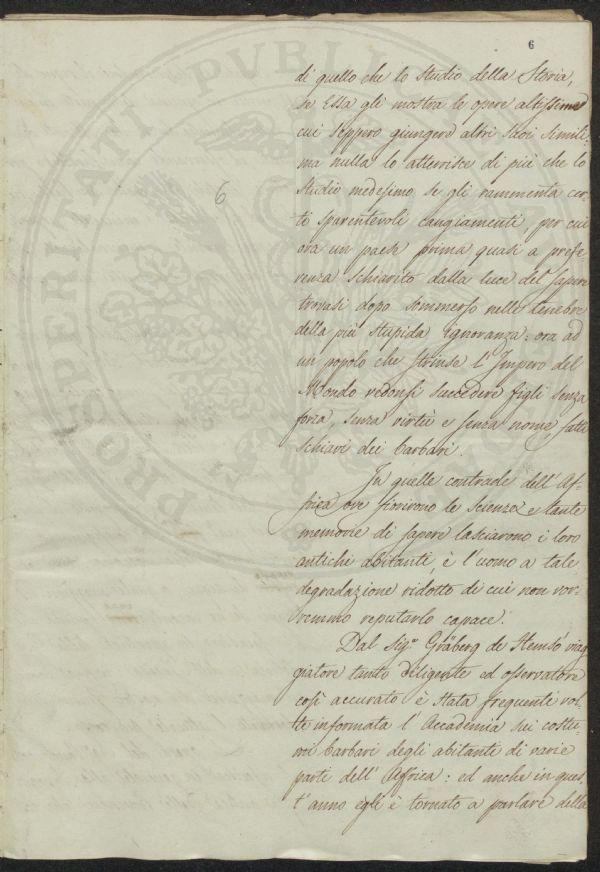 6
di quello che lo studio della Storia,
se Essa gli mostra le opere altissime
cui seppero giungere altri suoi simili:
ma nulla lo atterrisce di più che lo
studio medesimo se gli rammenta cer-
ti spaventevoli cangiamenti, per cui
ora un paese prima quasi a prefe
renza schiarito dalla luce del sapere
trovasi dopo sommerso nelle tenebre
della più stupida ignoranza: ora ad
un popolo che strinse l'Impero del
Mondo vedonsi succedere figli senza
forza, senza virtù e senza nome, fatti
schiavi dei barbari.
In quelle contrade dell'Af-
frica ove fiorivono le scienze e tante
memorie di sapere lasciarono i loro
antichi abitanti, è l'uomo a tale
degradazione ridotto di cui non vor-
remmo reputarlo capace.
Dal Sigr. Gräberg de Hemsö viag
giatore tanto diligente ed osservatore
così accurato è stata frequenti vol-
te informata l'Accademia sui costu-
mi barbari degli abitante di varie
parte dell'Affrica: ed anche in ques
t'anno egli è tornato a parlare della
6
PROSPERITATI PUBLICAE